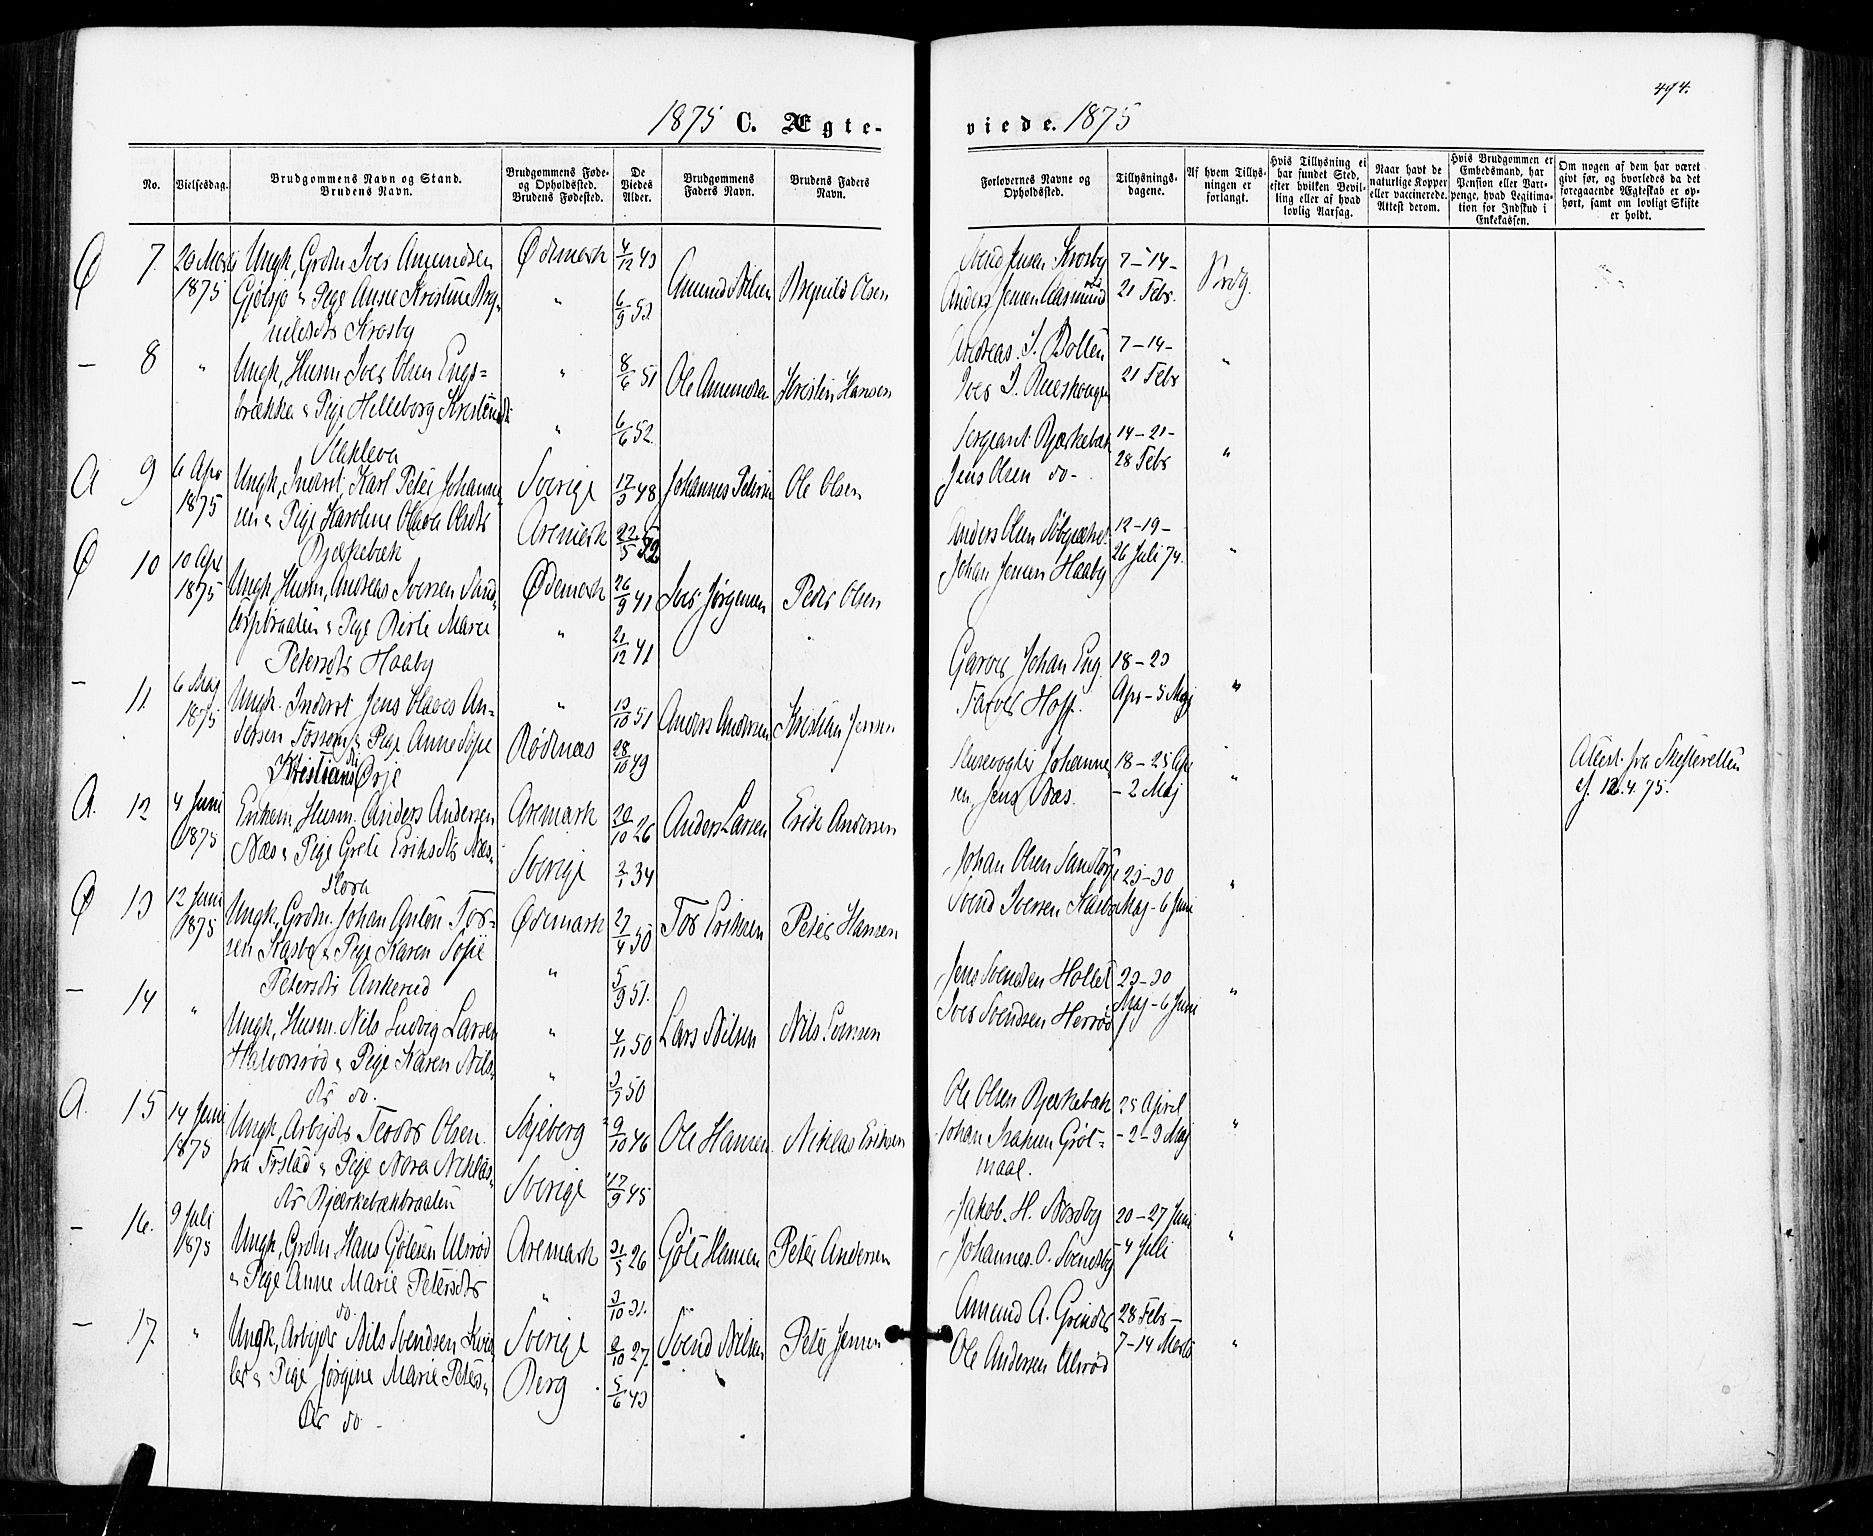 494.
1875 C. Ægte-
viede. 1875
No.
Vielsesdag.
Brudgommens Navn og Stand.
Brudens Navn.
Brudgommens Føde-
og Opholdssted.
Brudens Fødested.
De
Viedes
Alder.
Brudgommens
Faders Navn.
Brudens Faders
Navn.
Forlovernes Navne og
Opholdssted.
Tillysnings-
dagene.
Af hvem Tillys-
ningen er
forlangt.
Hvis Tillysning ei
har fundet Sted,
efter hvilken Bevil-
ling eller af hvad
lovlig Aarsag.
Naar havt de
naturlige Kopper
eller vaccinerede.
Attest derom.
Hvis Brudgommen er
Embedsmand, har
Pension eller Vart-
penge, hvad Legitima-
tion for Indskud i
Enkekassen.
Om nogen af dem har været
givt før, og hvorledes da det
foregaaende Ægteskab er op-
hørt, samt om lovligt Skifte
er holdt.
Ø 7. 20 Marts Ungk, Grdm Iver Amundsen Ødemark 4/12 43
1875 Gjølsjø & Pige Anne Kristine Brg- " 6/9 53. Amund Nilsen Brynild Olsen
nildsdtr Krosby
Svend Jensen Krosby 7-14-
Anders Jensen Aasmund 21 Febr.
– 8 " Ungk, Husm Iver Olsen Engs- " 8/6 51 Ole Amundsen Kristen Hansen
brække & Pige Helleborg Kristensdt " 6/6 52.
Andreas I. Bolten 7-14- "
Iver I. 21 Febr
A 9 6 Apr Ungk, Inderst, Karl Peter Johanne- Sverige 17/3 48 Johannes Petersen Ole Olsen
1875 sen & Pige Karoline Olava Olsdtr Aremark 22/5 52
Bjærkebæk
Sergeant Bjærkebæk 14-21- "
Jens Olsen do- 28 Febr
Ø 10 10 Apr Ungk, Husm, Andreas Iversen Sand- Ødemark 26/9 41 Iver Jørgensen Peder Olsen
1875 torpbraaten & Pige Berte Marie " 21/12 41
Petersdtr Haaby
Anders Olsen 12-19- "
Johan Jensen Haaby 26 Juli 74.
– 11. 6 Maj Ungk. Inderst Jens Olaves An- " 13/10 51 Anders Andersen Kristian Jensen
1875 dersen Fossem & Pige Anne Sofie Rødenæs 28/10 49
Kristiansdtr Ørje
Garver Johan Eng 18-25 "
Farver Hoff. Apr - 5 Maj
A. 12 4 Juni Enkem Husm. Anders Andersen Aremark 20/10 26 Anders Larsen Erik Andersen
1875 Næs & Pige Grete Eriksdtr Næs- Sverige 2/1 34
skora
Johanne- 18-25 Apr "
sen, Jens Næs. - 2 Maj
Attest fra Skifteretten
af 12.4.75.
Ø 13 12 Juni Ungk, Grdm. Johan Anton Tor- Ødemark 27/4 50 Tor Eriksen Peter Hansen
1875 sen Kasbo & Pige Karen Sofie " 5/9 51.
Petersdtr Ankerud
Johan Olsen Sandtorp 23-30 "
Svend Iversen Kasbo Maj-6 Juni
– 14 " Ungk, Husm. Nils Ludvig Larsen " 4/11 50 Lars Nilsen Nils Svensen
Halvorsrød & Pige Karen Nils- " 3/7 50
dtr do.
Jens Svendsen Hollet 23-30 "
Iver Svendsen Herrød Maj-6 Juni
A. 15 14 Juni Ungk, Arbejder Teodor Olsen Skjeberg 9/10 46 Ole Hansen Niklas Eriksen
1875 fra Trstad & Pige Nora Niklas- Sverige 17/9 45
dtr Bjærkebækbraaten
Ole Olsen Bjærkebæk 25 April "
Johan Isaksen Grøt- - 2-9 Maj
maal.
– 16. 9 Juli Ungk, Grdm Hans Gøtesen Ulsrød Aremark 31/5 26 Gøte Hansen Peter Andersen
1875 & Pige Anne Marie Petersdtr " 3/10 31.
do.
Jakob. H. Nordby 20-27 Juni "
Johannes. O. Svendsby - 4 Juli
– 17. " Ungk, Arbejder Nils Svendsen Kvis- Sverige 9/10 27. Svend Nilsen Peter Jensen
ler & Pige Jørgine Marie Peters- Berg 5/6 43
dtr do-
Amund A. Grinder 28 Febr- "
Ole Andersen Ulsrød 7-14 Marts